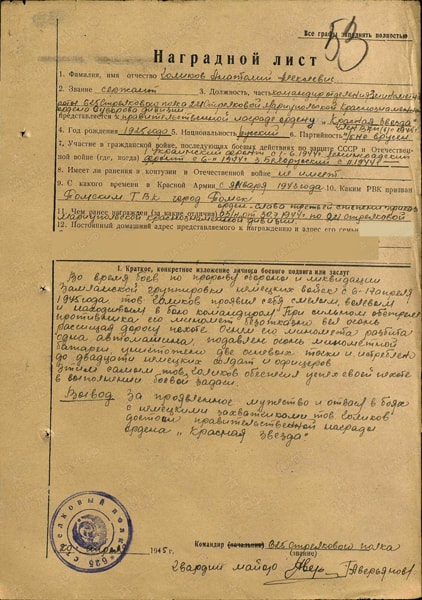 53
Все графы заполнить полностью
Наградной лист
1. Фамилия, имя отчество Голиков Анатолий Алексеевич
2. Звание сержант 3. Должность, часть командир отделения
роты 825 Стрелкового полка 221 Стрелковой Мариупольской Краснознаменной
ордена Суворова дивизии
представляется к правительственной награде ордену „Красная Звезда"
4. Год рождения 1926 года 5. Национальность русский 6. Партийность
7. Участие в гражданской войне, последующих боевых действиях по защите СССР и Отечествен-
ной войне (где, когда) Украинский фронт с 1944г. Ленинградский
фронт с 1944г. 3 Белорусский с 1944г.
8. Имеет ли ранения и контузии в Отечественной войне не имеет
9. С какого времени в Красной Армии с января 1943 года 10. Каким РВК призван
Томским ГВК город Томск
11. Чем ранее награжден (за какие отличия) орден „Слава третьей степени" приказ
1944г. по 221 стрелковой
Мариупольской дивизии
12. Постоянный домашний адрес представляемого к награждению и адрес его семьи
1. Краткое, конкретное изложение личного боевого подвига или заслуг
Во время боев по прорыву обороны и ликвидации
Земландской группировки немецких войск с 6-17 апреля
1945 года тов. Голиков проявил себя смелым, волевым
и находчивым в бою командиром. При сильном обстреле
противника его миномет безотказно вел огонь
расчищая дорогу пехоте. Огнем его миномета разбита
одна автомашина, подавлен огонь минометной
батареи уничтожены две огневых точки и истреблен
до двадцати немецких солдат и офицеров
Этим самым тов. Голиков обеспечил успех своей пехоте
в выполнении боевой задачи.
Вывод За проявленное мужество и отвагу в боях
с немецкими захватчиками тов Голиков
достоин правительственной награды
ордена „Красная Звезда"
Командир (начальник) 825 Стрелкового полка
(звание)
апреля 1945 г.
Гвардии майор Авер /Аверьянов/
825 стрелковый полк